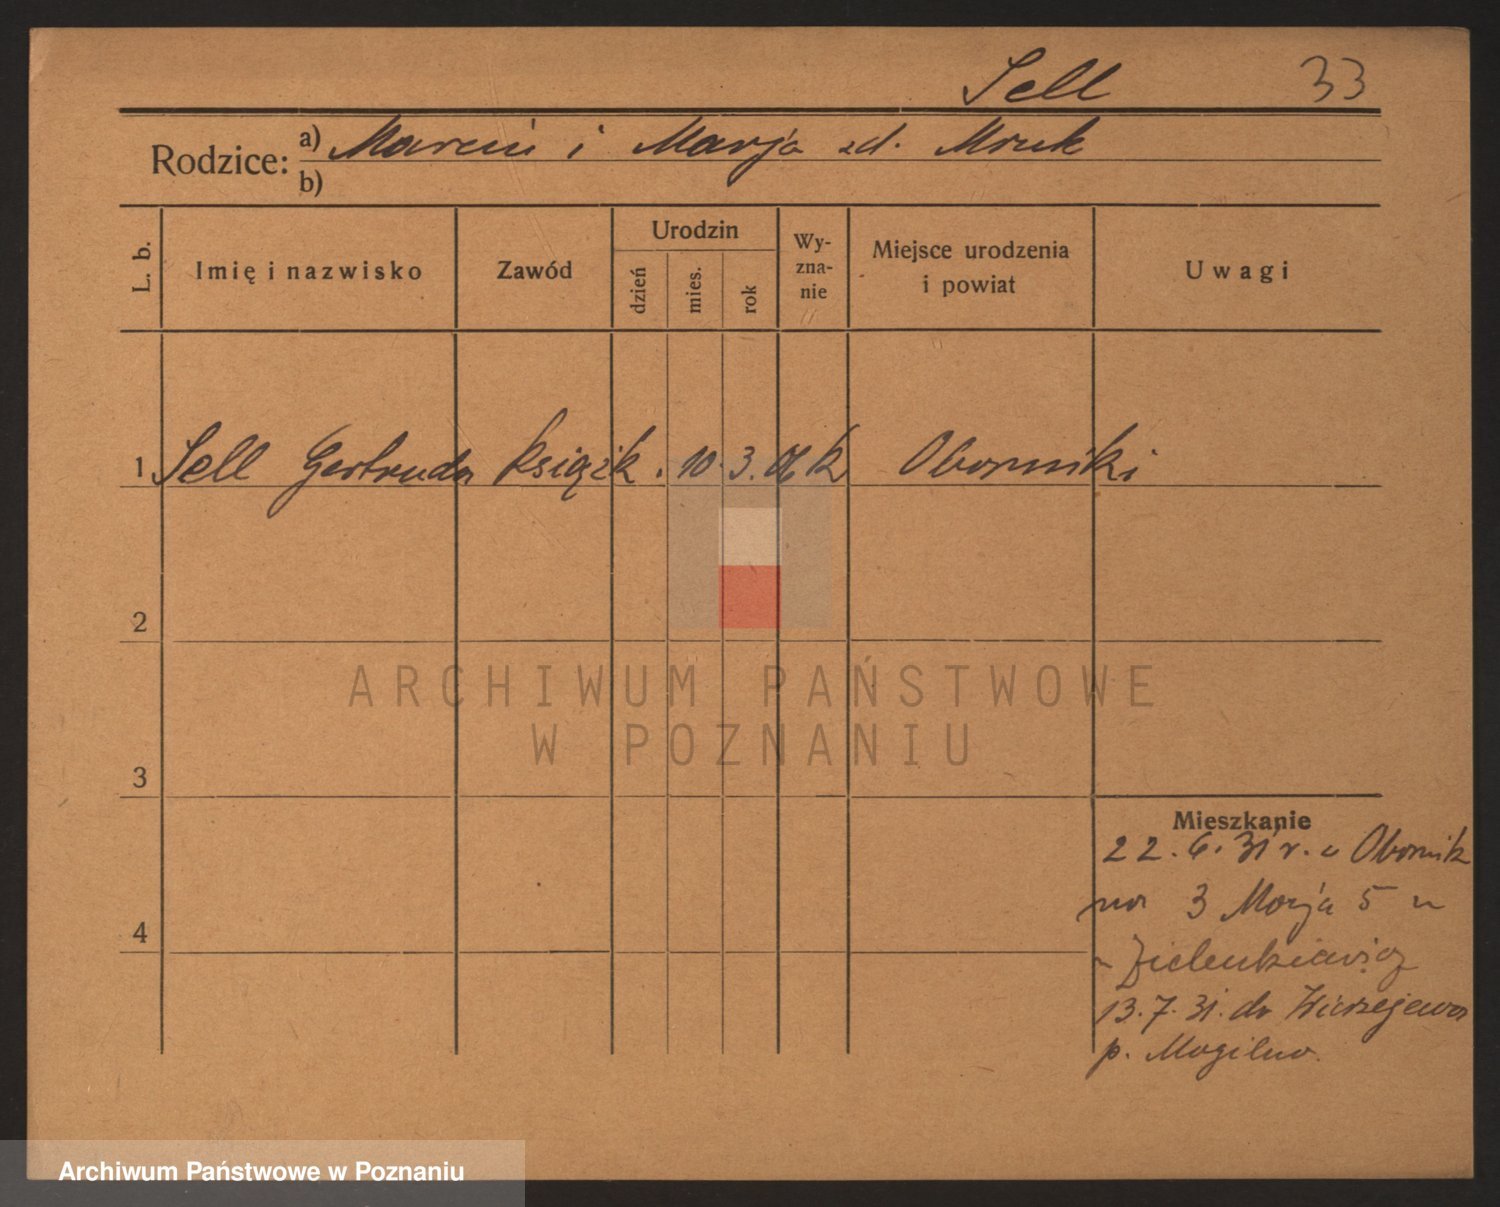 Sell 33
Rodzice: a) Marcin i Marja zd. Mruk
b)
L. b. Imię i nazwisko Zawód Urodzin dzień mies. rok Wy-zna-nie Miejsce urodzenia i powiat Uwagi
1 Sell Gertruda książk. 10. 3. 06 k Oborniki
2
3
4
Mieszkanie
22. 6. 31 r. z Obornik
na 3 Maja 5
Zielenkiewicz
13. 7. 31. do
p. Mogilno.
ARCHIWUM PAŃSTWOWE
W POZNANIU
Archiwum Państwowe w Poznaniu